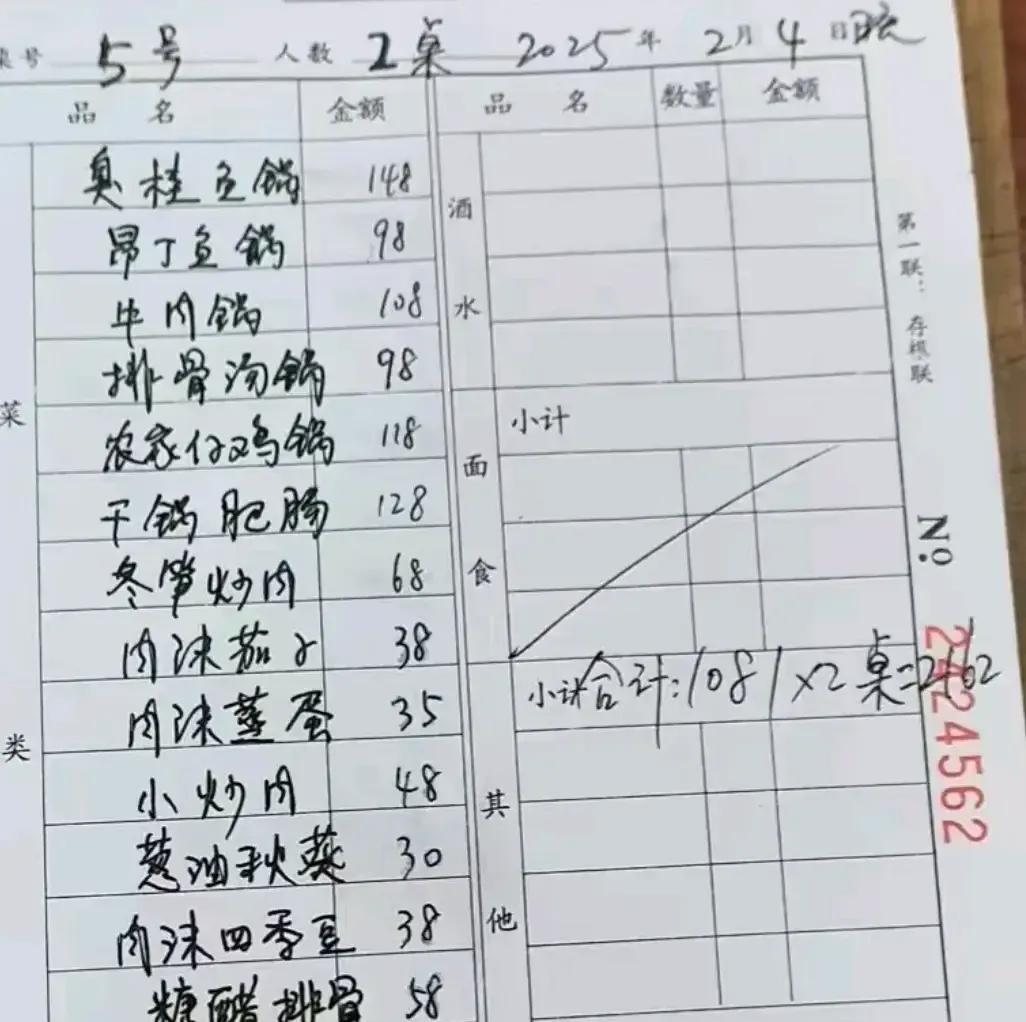 桌号 5号 人数 2桌 2025年 2月 4日晚
品 名 金额 品 名 数量 金额
菜类
臭桂鱼锅 148
昂丁鱼锅 98
牛肉锅 108
排骨汤锅 98
农家仔鸡锅 118
干锅肥肠 128
冬笋炒肉 68
肉沫茄子 38
肉沫蒸蛋 35
小炒肉 48
葱油秋葵 30
肉沫四季豆 38
糖醋排骨 58
酒水
小计
面食
小计合计:1081×2桌=2162
其他
第一联:存根联
No. 2424562